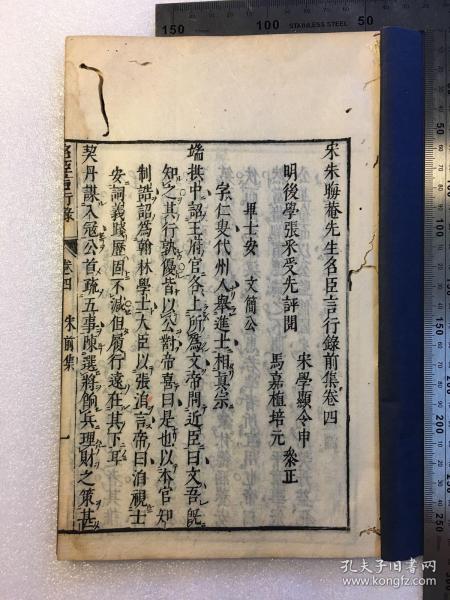 宋朱晦菴先生名臣言行錄前集卷四
明後學張采受先評閱
宋學顯令申
馬嘉植培元
參正
畢士安 文簡公
字仁叟代州人舉進士相真宗
端拱中詔王府官各上所爲文帝問近臣曰文吾旣
知之其行孰優皆以公對帝喜曰是也以本官知
制誥詔爲翰林學士大臣以張洎言帝曰洎視士
安詞義踐歷固不減但履行遠在其下耳
契丹謀入冦公首疏五事陳選將餉兵理財之策甚
名臣言行錄 卷四 宋前集
150
100
STAINLESS STEEL
50
100
150
200
250
孔夫子旧书网
www.kongfz.com